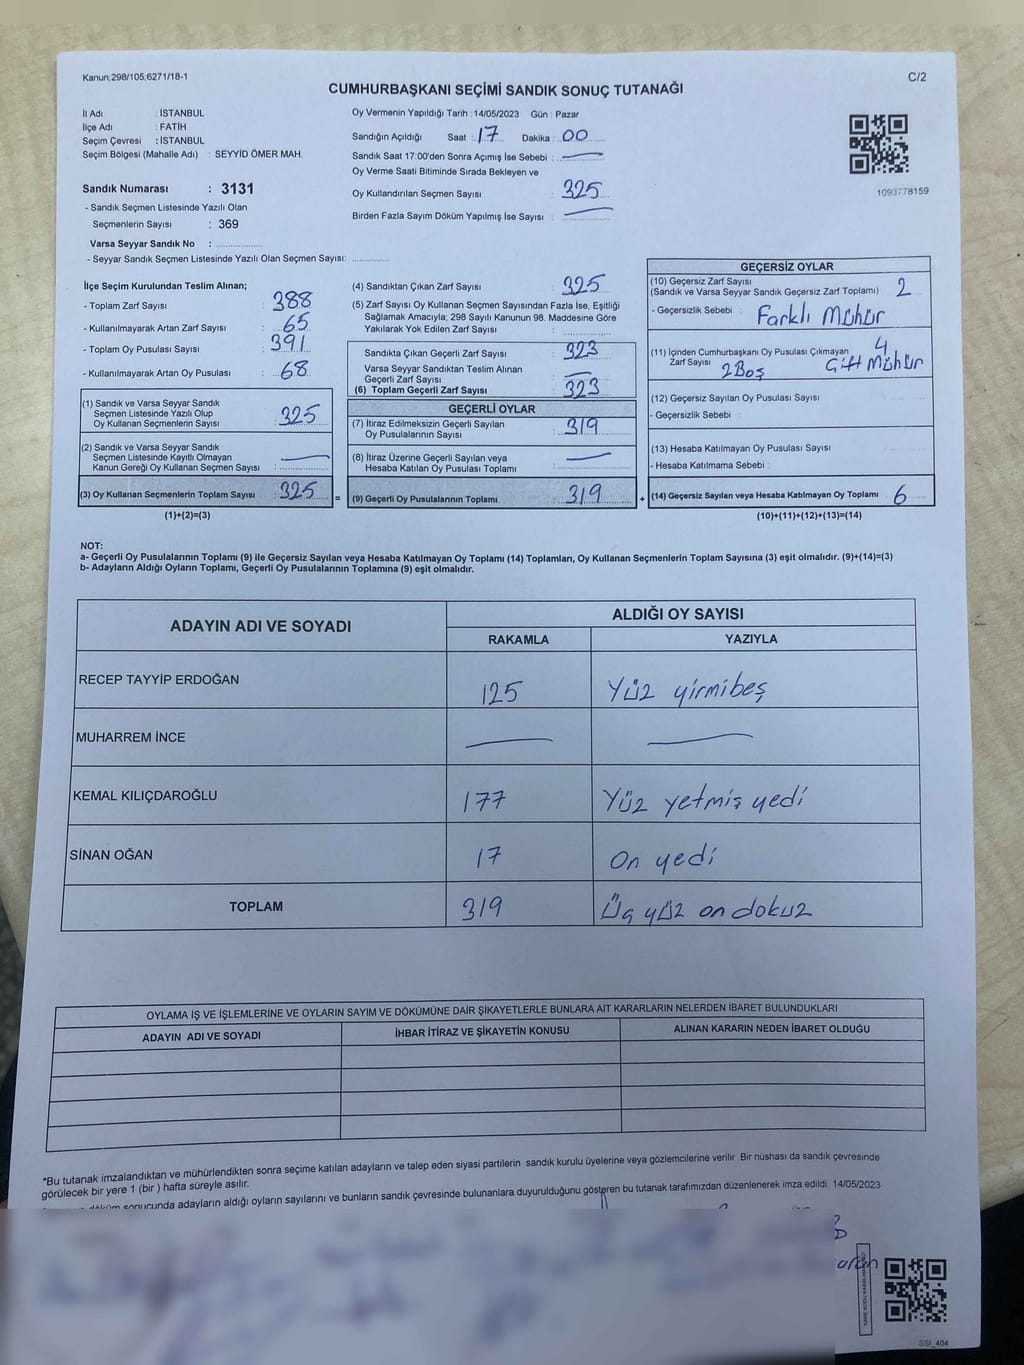 Kanun;298/105,6271/18-1
C/2
CUMHURBAŞKANI SEÇİMİ SANDIK SONUÇ TUTANAĞI
İl Adı : İSTANBUL
İlçe Adı : FATİH
Seçim Çevresi : İSTANBUL
Seçim Bölgesi (Mahalle Adı) : SEYYİD ÖMER MAH.
Sandık Numarası : 3131
- Sandık Seçmen Listesinde Yazılı Olan
Seçmenlerin Sayısı : 369
Varsa Seyyar Sandık No :
- Seyyar Sandık Seçmen Listesinde Yazılı Olan Seçmen Sayısı:
Oy Vermenin Yapıldığı Tarih : 14/05/2023 Gün : Pazar
Sandığın Açıldığı Saat : 17 Dakika : 00
Sandık Saat 17:00'den Sonra Açımış İse Sebebi : —
Oy Verme Saati Bitiminde Sırada Bekleyen ve
Oy Kullandırılan Seçmen Sayısı : 325
Birden Fazla Sayım Döküm Yapılmış İse Sayısı : —
1093778159
İlçe Seçim Kurulundan Teslim Alınan;
- Toplam Zarf Sayısı : 388
- Kullanılmayarak Artan Zarf Sayısı : 65
- Toplam Oy Pusulası Sayısı : 391
- Kullanılmayarak Artan Oy Pusulası : 68
(1) Sandık ve Varsa Seyyar Sandık
Seçmen Listesinde Yazılı Olup
Oy Kullanan Seçmenlerin Sayısı : 325
(2) Sandık ve Varsa Seyyar Sandık
Seçmen Listesinde Kayıtlı Olmayan
Kanun Gereği Oy Kullanan Seçmen Sayısı : —
(3) Oy Kullanan Seçmenlerin Toplam Sayısı : 325 =
(1)+(2)=(3)
(4) Sandıktan Çıkan Zarf Sayısı : 325
(5) Zarf Sayısı Oy Kullanan Seçmen Sayısından Fazla İse, Eşitliği
Sağlamak Amacıyla; 298 Sayılı Kanunun 98. Maddesine Göre
Yakılarak Yok Edilen Zarf Sayısı :
Sandıkta Çıkan Geçerli Zarf Sayısı : 323
Varsa Seyyar Sandıktan Teslim Alınan
Geçerli Zarf Sayısı : —
(6) Toplam Geçerli Zarf Sayısı : 323
GEÇERLİ OYLAR
(7) İtiraz Edilmeksizin Geçerli Sayılan
Oy Pusulalarının Sayısı : 319
(8) İtiraz Üzerine Geçerli Sayılan veya
Hesaba Katılan Oy Pusulası Toplamı : —
(9) Geçerli Oy Pusulalarının Toplamı : 319 +
GEÇERSİZ OYLAR
(10) Geçersiz Zarf Sayısı
(Sandık ve Varsa Seyyar Sandık Geçersiz Zarf Toplamı) 2
- Geçersizlik Sebebi : Farklı Mühür
(11) İçinden Cumhurbaşkanı Oy Pusulası Çıkmayan 4
Zarf Sayısı 2 Boş Çift Mühür
(12) Geçersiz Sayılan Oy Pusulası Sayısı
- Geçersizlik Sebebi :
(13) Hesaba Katılmayan Oy Pusulası Sayısı
- Hesaba Katılmama Sebebi :
(14) Geçersiz Sayılan veya Hesaba Katılmayan Oy Toplamı 6
(10)+(11)+(12)+(13)=(14)
NOT:
a- Geçerli Oy Pusulalarının Toplamı (9) ile Geçersiz Sayılan veya Hesaba Katılmayan Oy Toplamı (14) Toplamları, Oy Kullanan Seçmenlerin Toplam Sayısına (3) eşit olmalıdır. (9)+(14)=(3)
b- Adayların Aldığı Oyların Toplamı, Geçerli Oy Pusulalarının Toplamına (9) eşit olmalıdır.
ADAYIN ADI VE SOYADI
ALDIĞI OY SAYISI
RAKAMLA YAZIYLA
RECEP TAYYİP ERDOĞAN 125 Yüz yirmibeş
MUHARREM İNCE — —
KEMAL KILIÇDAROĞLU 177 Yüz yetmiş yedi
SİNAN OĞAN 17 On yedi
TOPLAM 319 Üç yüz on dokuz
OYLAMA İŞ VE İŞLEMLERİNE VE OYLARIN SAYIM VE DÖKÜMÜNE DAİR ŞİKAYETLERLE BUNLARA AİT KARARLARIN NELERDEN İBARET BULUNDUKLARI
ADAYIN ADI VE SOYADI İHBAR İTİRAZ VE ŞİKAYETİN KONUSU ALINAN KARARIN NEDEN İBARET OLDUĞU
*Bu tutanak imzalandıktan ve mühürlendikten sonra seçime katılan adayların ve talep eden siyasi partilerin sandık kurulu üyelerine veya gözlemcilerine verilir. Bir nüshası da sandık çevresinde
görülecek bir yere 1 (bir) hafta süreyle asılır.
döküm sonucunda adayların aldığı oyların sayılarını ve bunların sandık çevresinde bulunanlara duyurulduğunu gösteren bu tutanak tarafımızdan düzenlenerek imza edildi. 14/05/2023